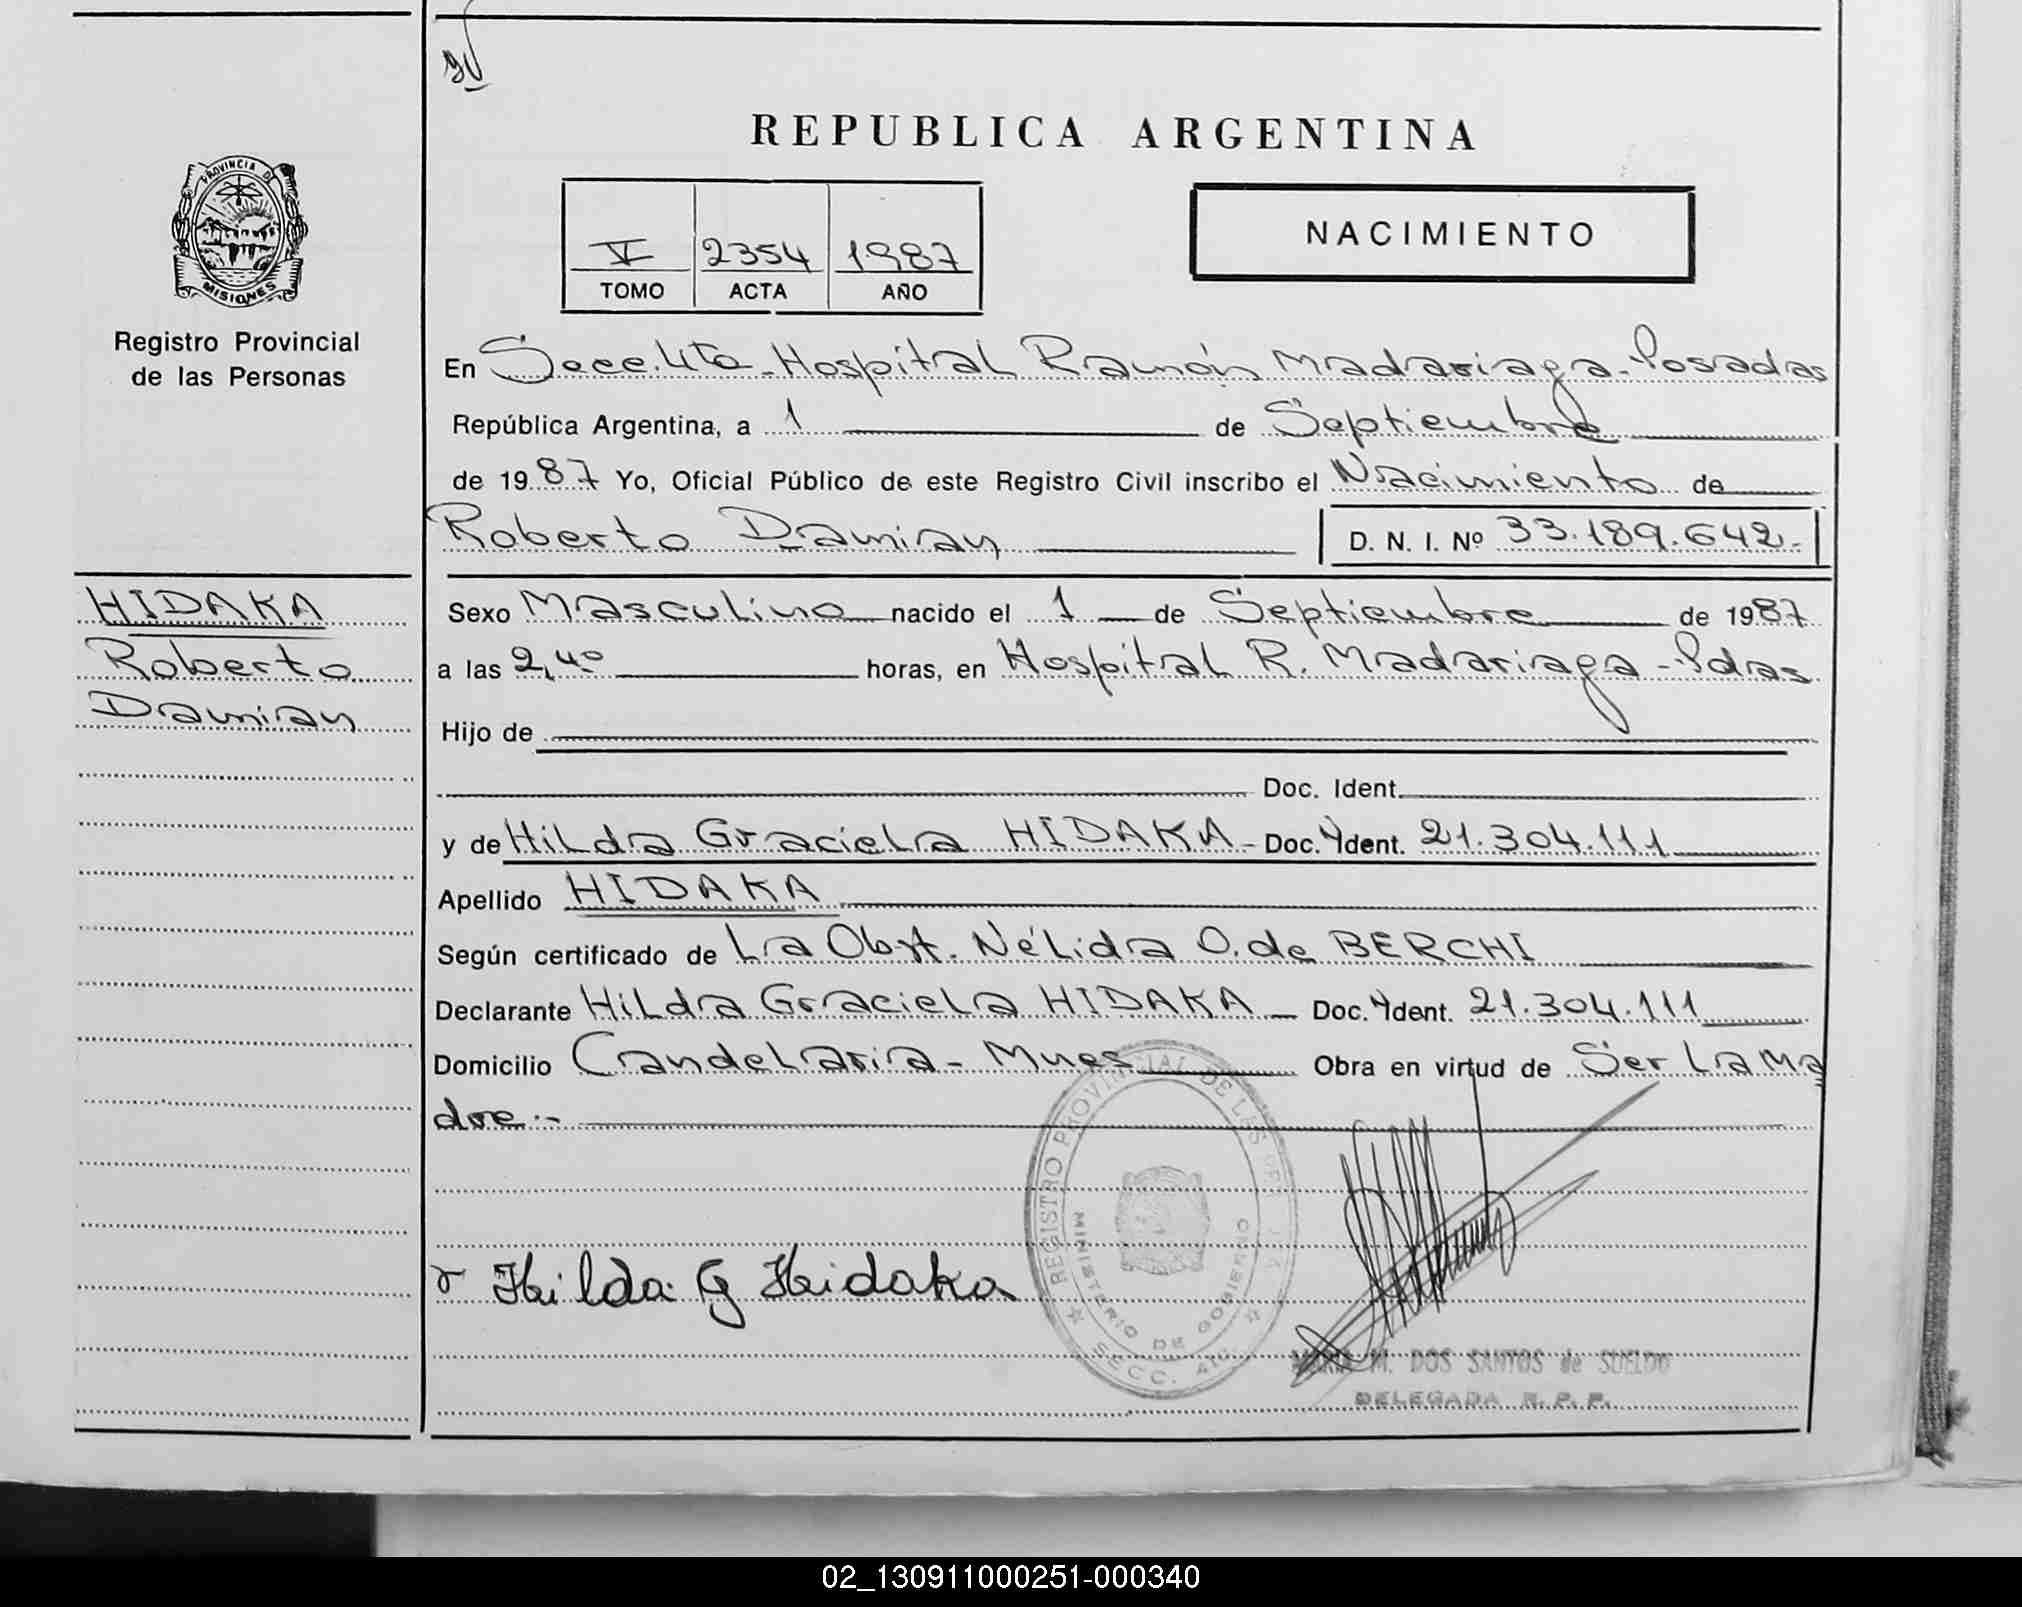 REPUBLICA ARGENTINA
PROVINCIA DE
MISIONES
Registro Provincial
de las Personas
V 2354 1987
TOMO ACTA AÑO
NACIMIENTO
En Secc. 4ta - Hospital Ramón Madariaga - Posadas
República Argentina, a 1 de Septiembre
de 1987 Yo, Oficial Público de este Registro Civil inscribo el Nacimiento de
Roberto Damian D. N. I. Nº 33.189.642.-
HIDAKA
Roberto
Damian
Sexo Masculino nacido el 1 de Septiembre de 1987
a las 2,40 horas, en Hospital R. Madariaga - Pdas
Hijo de
Doc. Ident.
y de Hilda Graciela HIDAKA - Doc. Ident. 21.304.111
Apellido HIDAKA
Según certificado de La Obst. Nélida O. de BERCHI
Declarante Hilda Graciela HIDAKA - Doc. Ident. 21.304.111
Domicilio Candelaria - Mnes Obra en virtud de Ser La Ma
dre.-
REGISTRO PROVINCIAL DE LAS
MINISTERIO DE GOBIERNO
SECC. 4ta.
Hilda G Hidaka
MARIA M. DOS SANTOS de SUELDO
DELEGADA R. P. P.
02_130911000251-000340